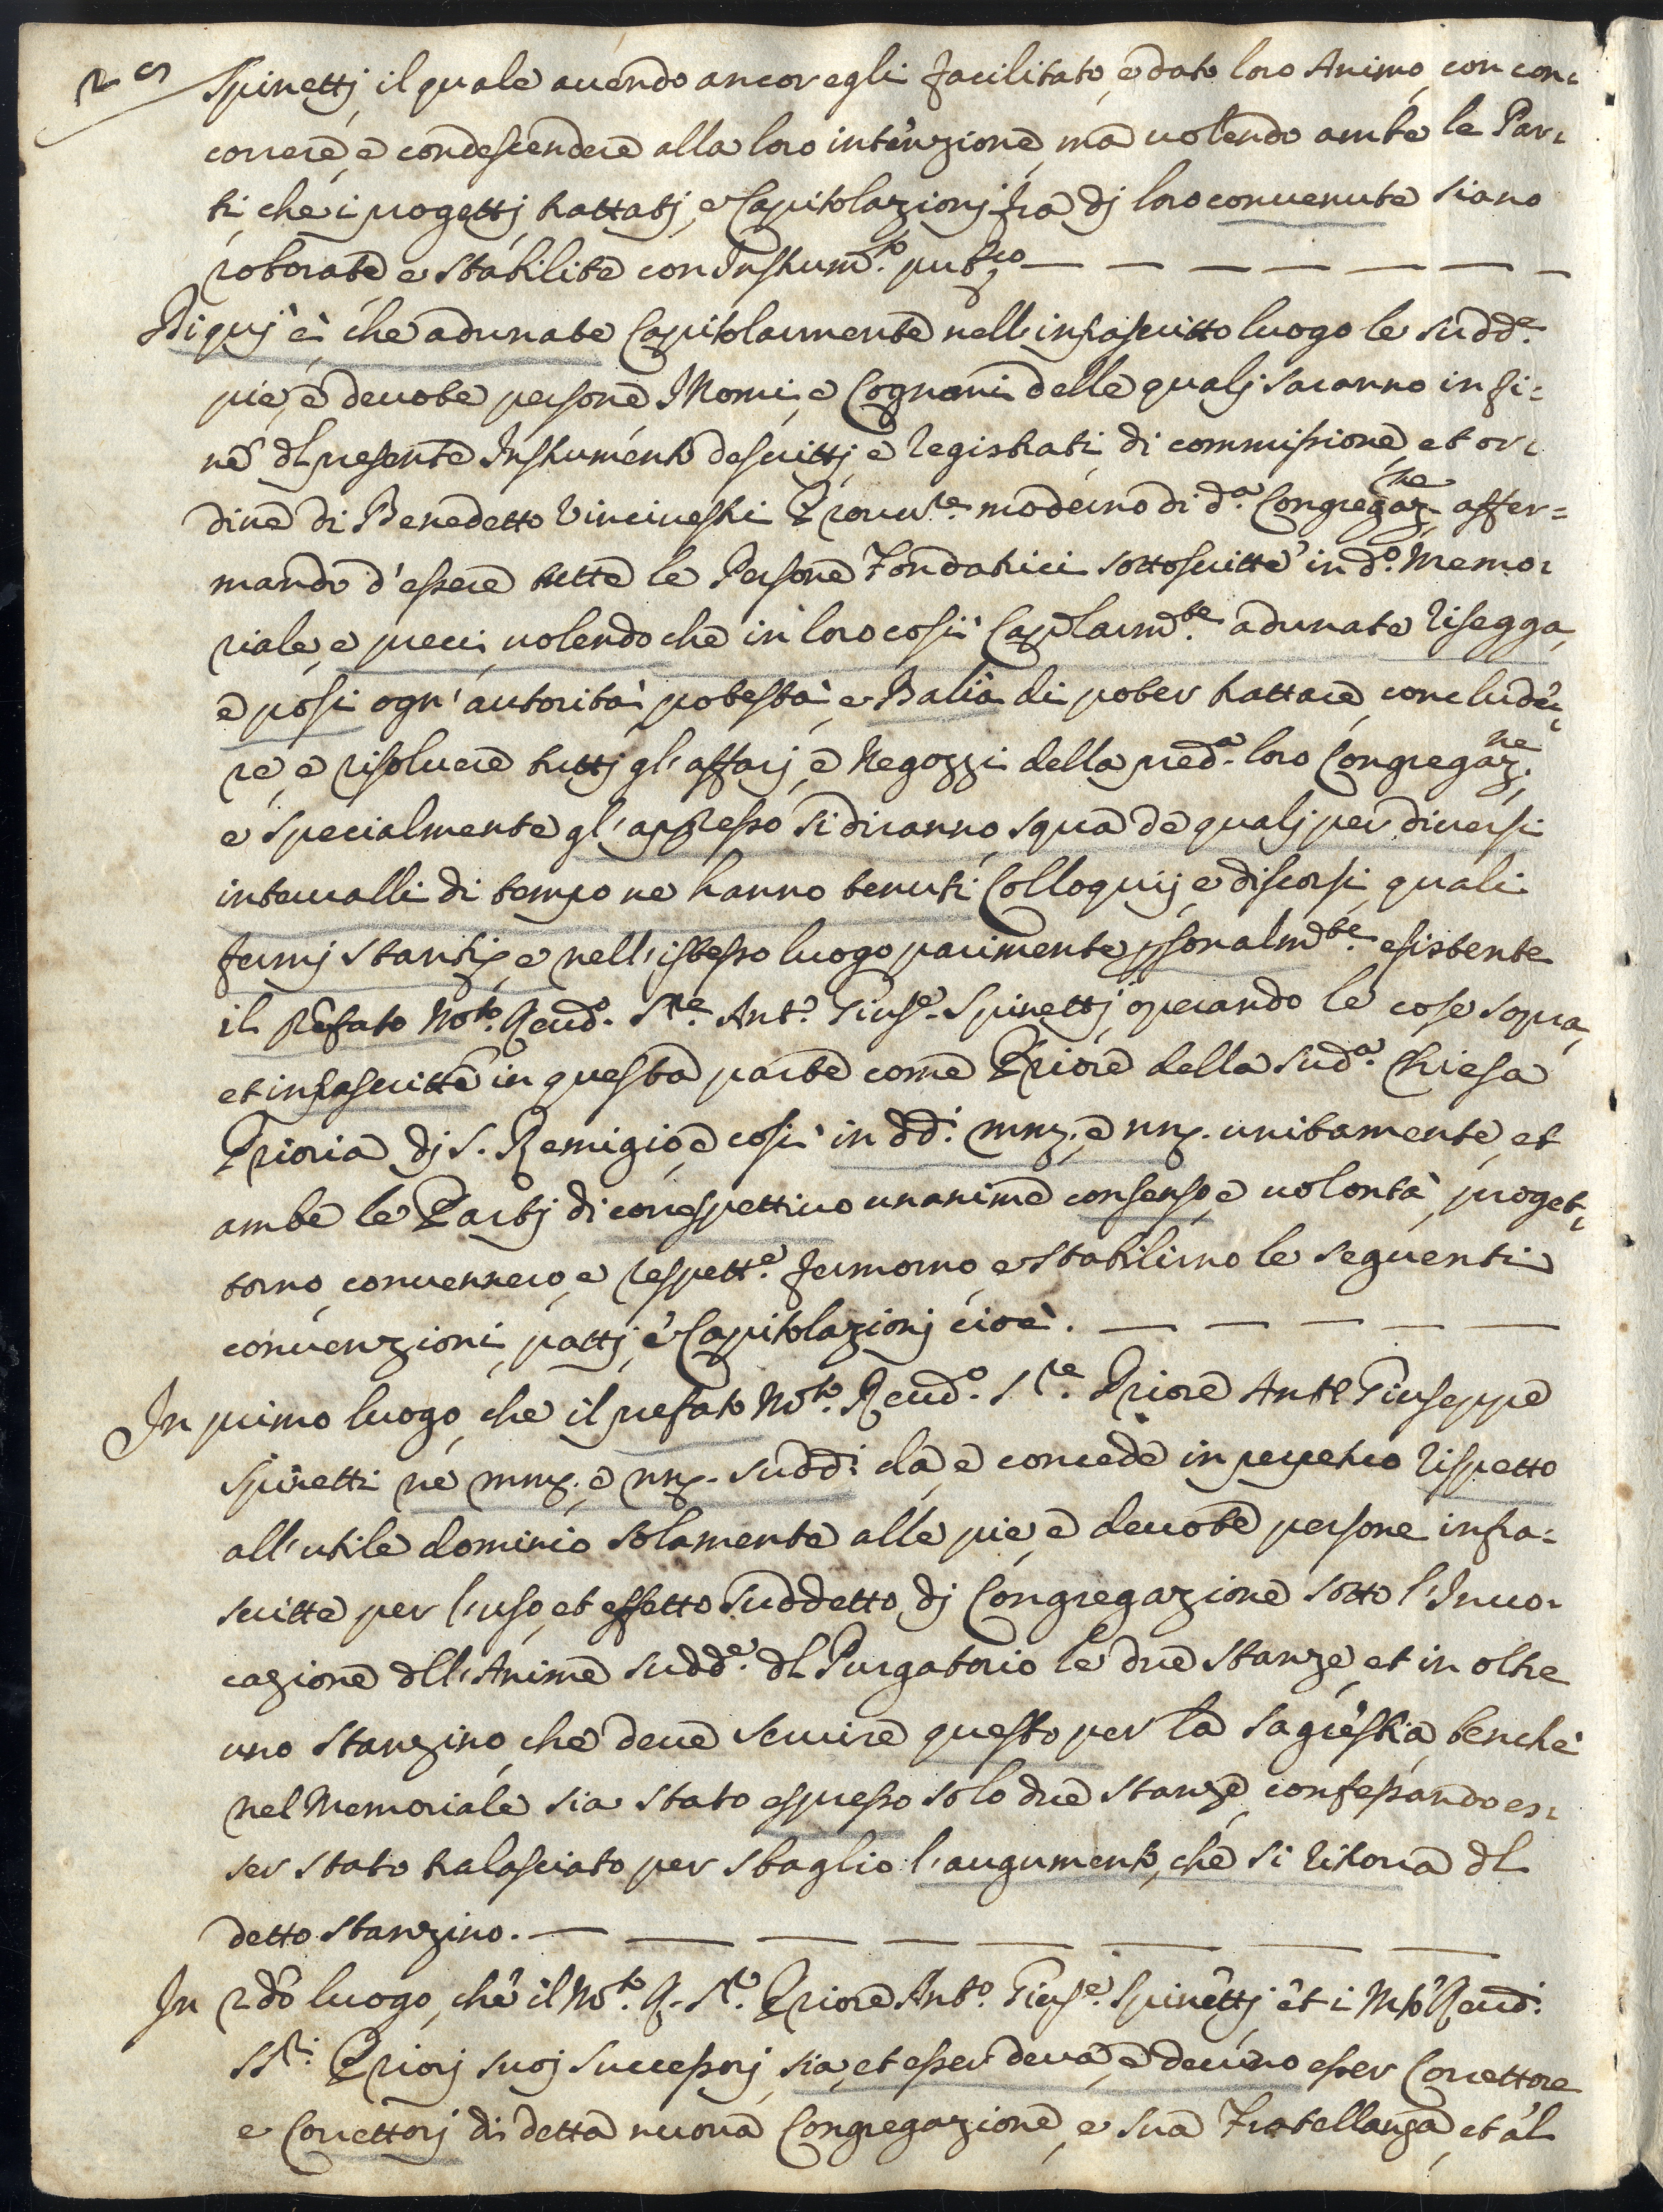 Spinettj, il quale auendo ancor egli facilitato, e dato loro Animo, con con=
correre, e condescendere alla loro intenzione, ma uolendo ambe le Par=
ti, che i progettj, trattatj, e Capitolazionj fra dj loro conuenute siano
roborate e stabilite con Instrum.to pub.co
Di quj è, che adunate Capitolarmente nell'infrascritto luogo le sudd.e
pie, e deuote persone I Nomi, e Cognomi delle qualj saranno in fi=
ne dl presente Instrumento descrittj, e registrati, di commissione, et or=
dine di Benedetto Vincineschi Prou.re moderno di d.a Congregaz.ne affer=
mando d'essere tutte le Persone Fondatrici sottoscritte in d.o Memo=
riale, e preci, uolendo che in loro così Caplarm.te adunate risegga,
e possi ogn'autorità, potestà, e Balia di poter trattare, conclude=
re, e risoluere tuttj gl'affarj, e Negozzi della pred.a loro Congregaz.ne
e specialmente gl'appresso si diranno, sopra de qualj per diuersi
interualli di tempo ne hanno tenuti Colloquij, e discorsi, quali
fermj stantj, e nell'istesso luogo parimente psonalm.te esistente
il prefato M.to Reud.o S.re Ant.o Gius.e Spinettj operando le cose sopra,
et infrascritte in questa parte come Priore della sud.a Chiesa
Prioria dj S. Remigio, e così in dd.i mnz. e nnz. unitamente, et
ambe le Partj di correspettiuo unanime consenso, e uolontà, proget=
torno, conuennero, e respett.e fermorno, e stabilirno le seguenti
conuenzioni, pattj, e Capitolazionj cioè.
In primo luogo, che il prefato M.to Reud.o S.re Priore Ant.o Giuseppe
Spinetti ne mnz. e nnz. sudd.i dà, e concede in perpetuo rispetto
all'utile dominio solamente alle pie, e deuote persone infra=
scritte per l'uso, et effetto suddetto dj Congregazione sotto l'Inuo=
cazione dll'Anime sudd.e dl Purgatorio le due stanze, et in oltre
uno stanzino, che deue seruire questo per la sagrestia, benche
nel Memoriale sia stato espresso solo due stanze, confessando es=
ser stato tralasciato per sbaglio l'augumento, che si ritroua dl
detto stanzino.
In 2do luogo, che il M.to R. S.re Priore Ant.o Gius.e Spinettj, et i M.to Reud.i
SS.ri Priorj suoj successorj, sia, et esser deua, e deuino esser Correttore
e Correttorj di detta nuoua Congregazione, e sua Fratellanza, et al